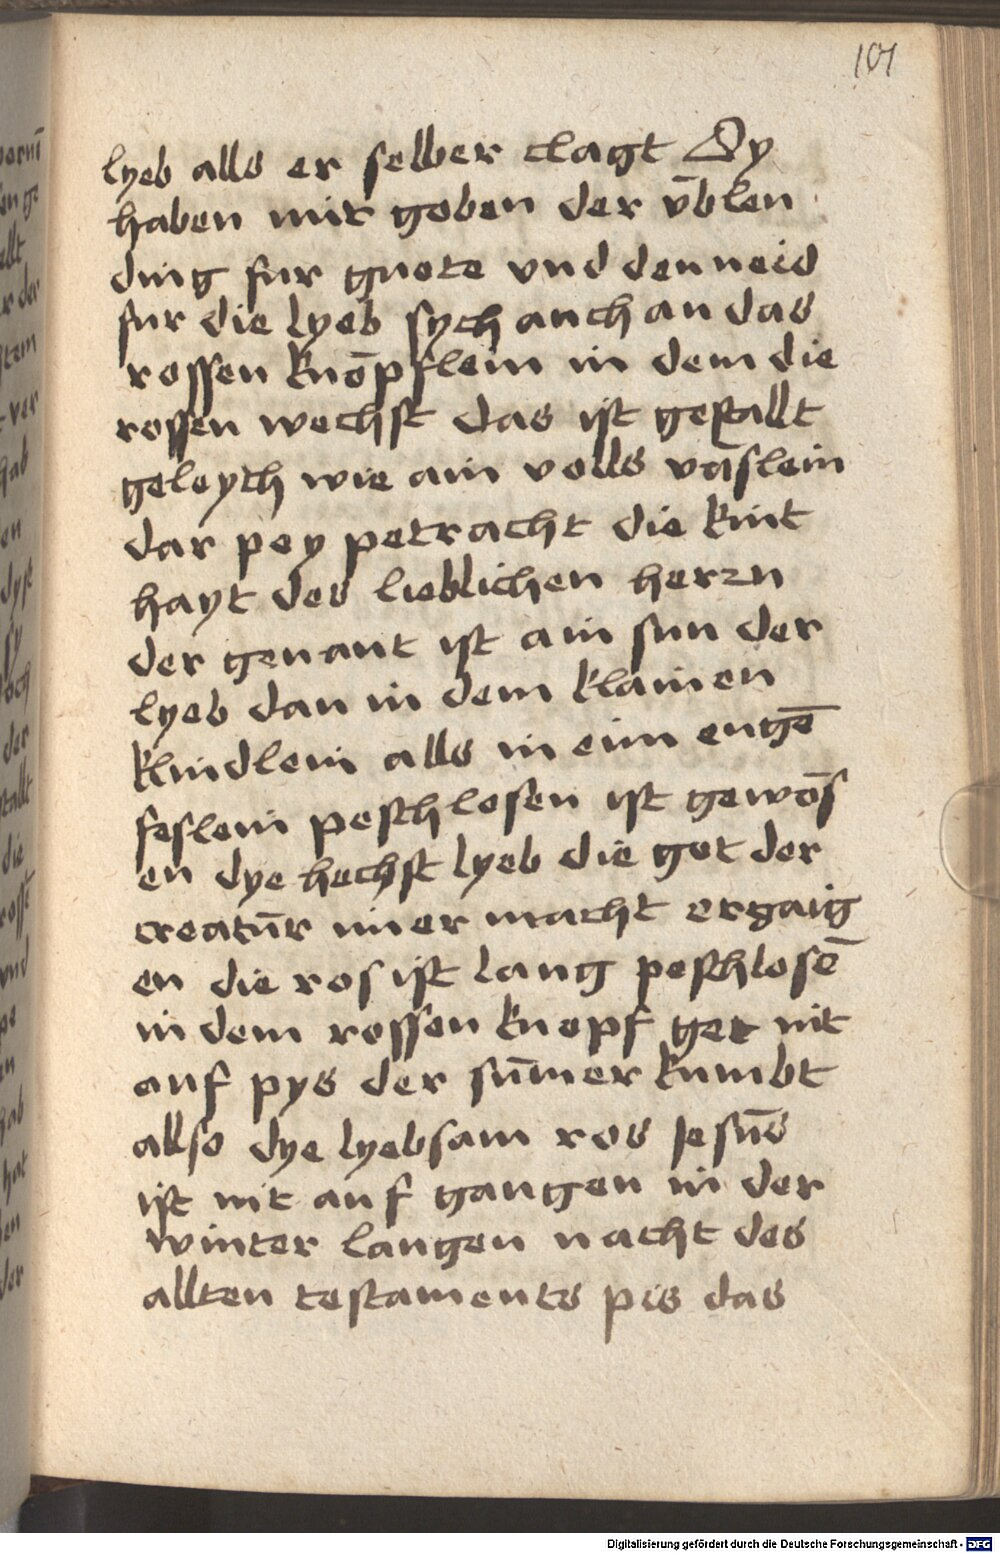 101
lyeb alls er selber clagt Sy
haben mir geben der v̄blen
ding fur guete vnd den neid
fur die lyeb sych auch an das
rossen knōpflein in dem die
rossen wechst das ist gestallt
geleych wie ain volls vāslein
dar pey petracht die kint
hayt des lieblichen herzn
der genant ist ain sun der
lyeb dan in dem klainen
klindlein alls in eim engē
feslein peschlosen ist gewōs
en dye hechst lyeb die got der
creatūr imer macht erzaig
en die ros ist lang peschlosē
in dem rossen knopf get nit
auf pys der sūmer kumbt
allso dye lyebsam ros Jesūs
ist nit auf gangen in der
winter langen nacht des
allten testaments pis das
Digitalisierung gefördert durch die Deutsche Forschungsgemeinschaft - DFG